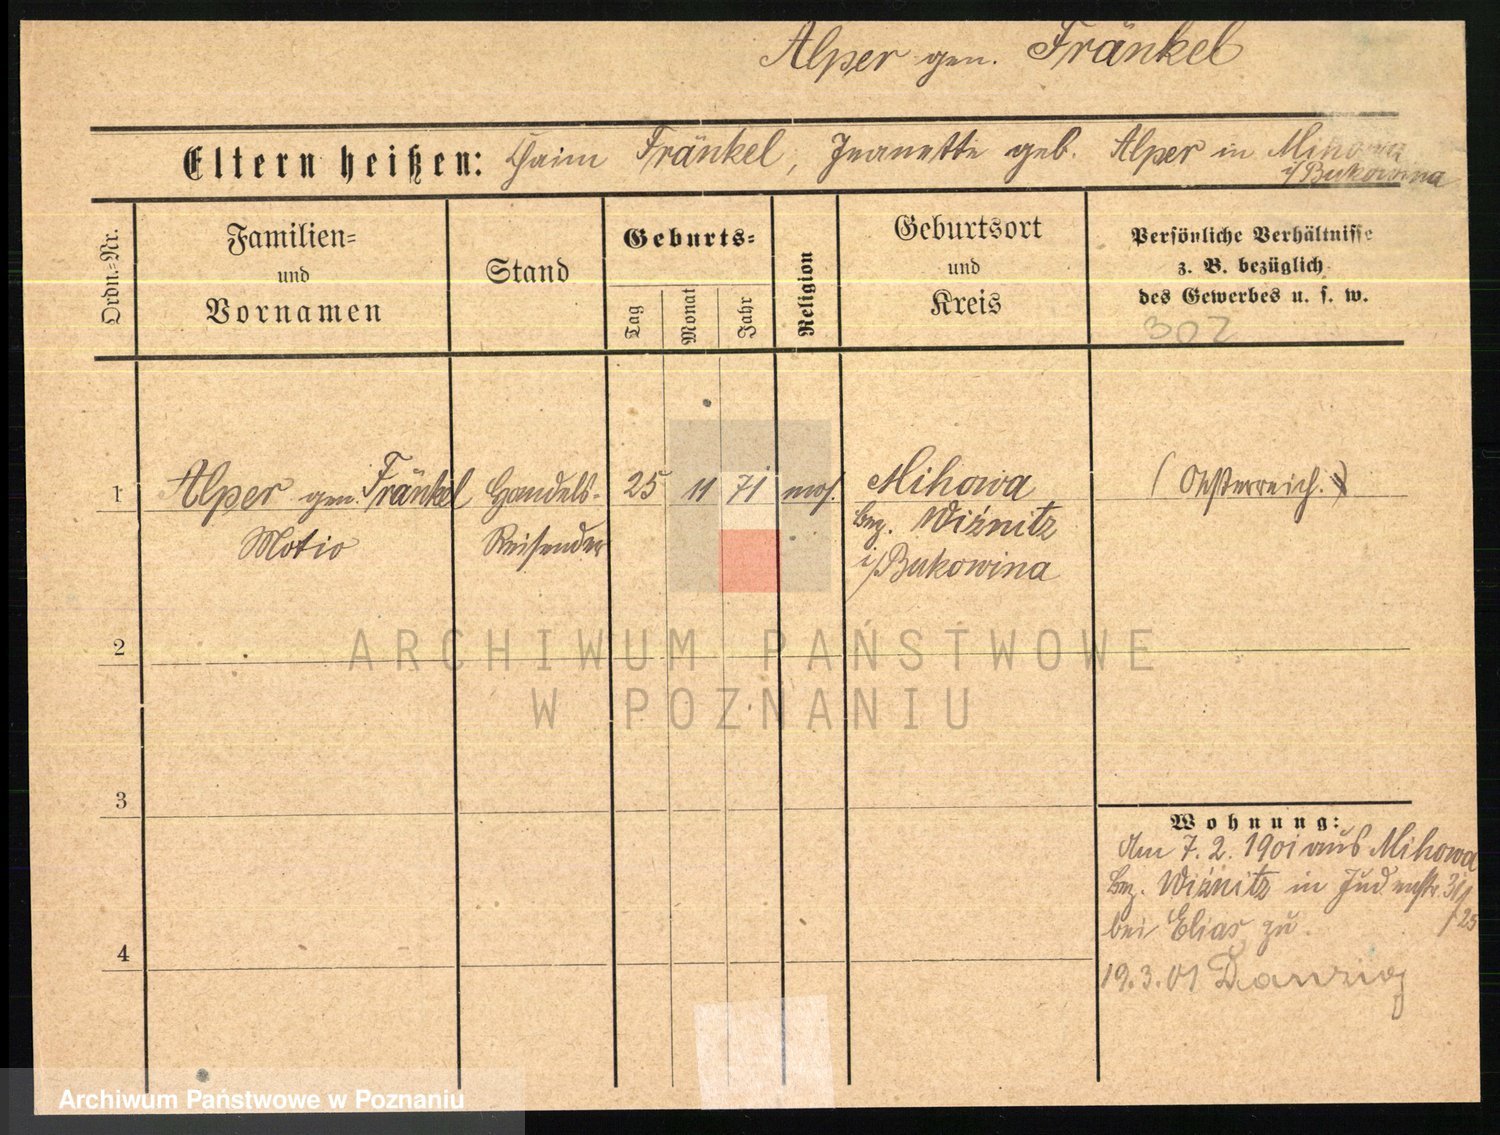 Alper gen. Fränkel
Eltern heißen: Chaim Fränkel, Jeanette geb. Alper in Mihowa
i/Bukowina
Ordn.-Nr.
Familien-
und
Vornamen
Stand
Geburts-
Tag
Monat
Jahr
Religion
Geburtsort
und
Kreis
Persönliche Verhältnisse
z. B. bezüglich
des Gewerbes u. s. w.
302
1 Alper gen. Fränkel Handels- 25 11 71 mos. Mihowa (Oesterreich.)
Motio Reisender Bez. Wiźnitz
i/Bukowina
2
ARCHIWUM PAŃSTWOWE
W POZNANIU
3
Wohnung:
Am 7. 2. 1901 aus Mihowa
Bez. Wiźnitz in Judenstr. 31/
bei Elias zu. /25
4
19. 3. 01 Danzig
Archiwum Państwowe w Poznaniu